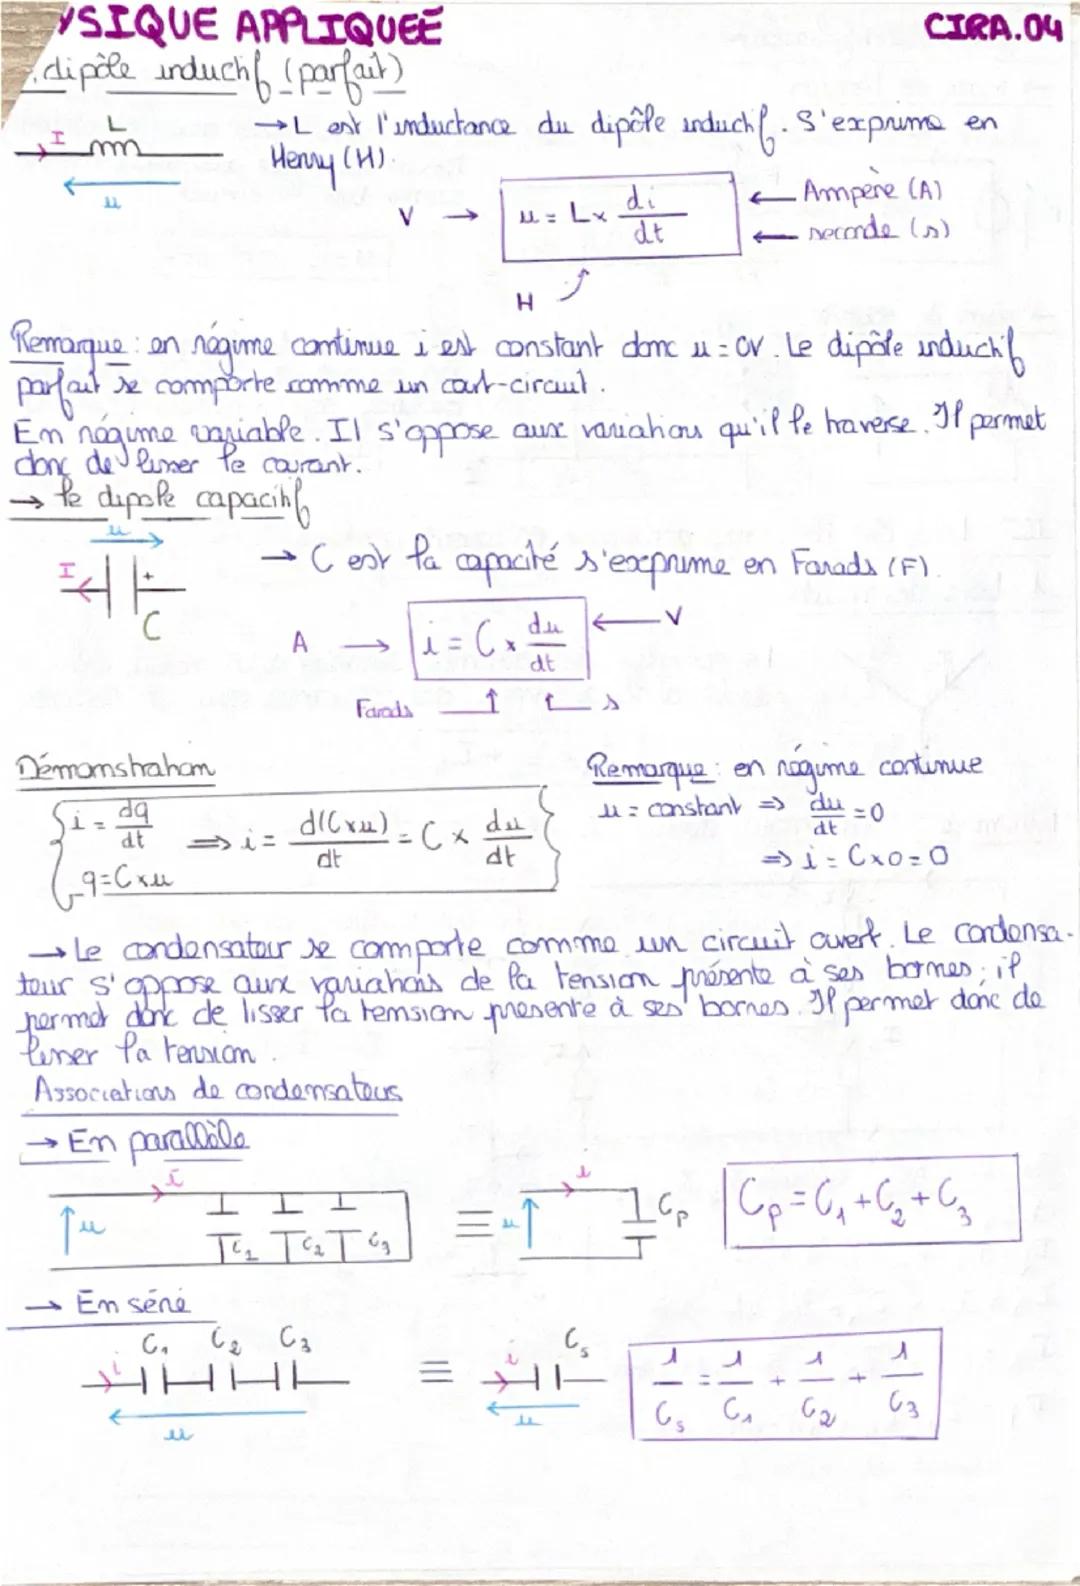 YSIQUE APPLIQUEÉ CIRA.04
dipôle inductif (parfait)
I L
u
→ L est l'inductance du dipôle inductif. S'exprime en
Henry (H).
V → u = L x di/dt ← Ampère (A)
← seconde (s)
H
Remarque : en régime continue i est constant donc u = 0V. Le dipôle inductif
parfait se comporte comme un court-circuit.
En régime variable. Il s'oppose aux variations qu'il le traverse. Il permet
donc de lisser le courant.
→ le dipole capacitif
u
I + C
→ C est la capacité s'exprime en Farads (F).
A → i = C x du/dt ← V
Farads ↑ ↑ s
Démonstration
i = dq/dt ⇒ i = d(C x u)/dt = C x du/dt
q = C x u
Remarque : en régime continue
u = constant ⇒ du/dt = 0
⇒ i = C x 0 = 0
→ Le condensateur se comporte comme un circuit ouvert. Le condensa-
teur s'oppose aux variations de la tension présente à ses bornes ; il
permet donc de lisser la tension presente à ses bornes. Il permet donc de
lisser la tension.
Associations de condensateurs
→ En parallèle
i i
u C1 C2 C3 ≡ u Cp Cp = C1 + C2 + C3
→ En série
C1 C2 C3 Cs
i ≡ i 1/Cs = 1/C1 + 1/C2 + 1/C3
u u